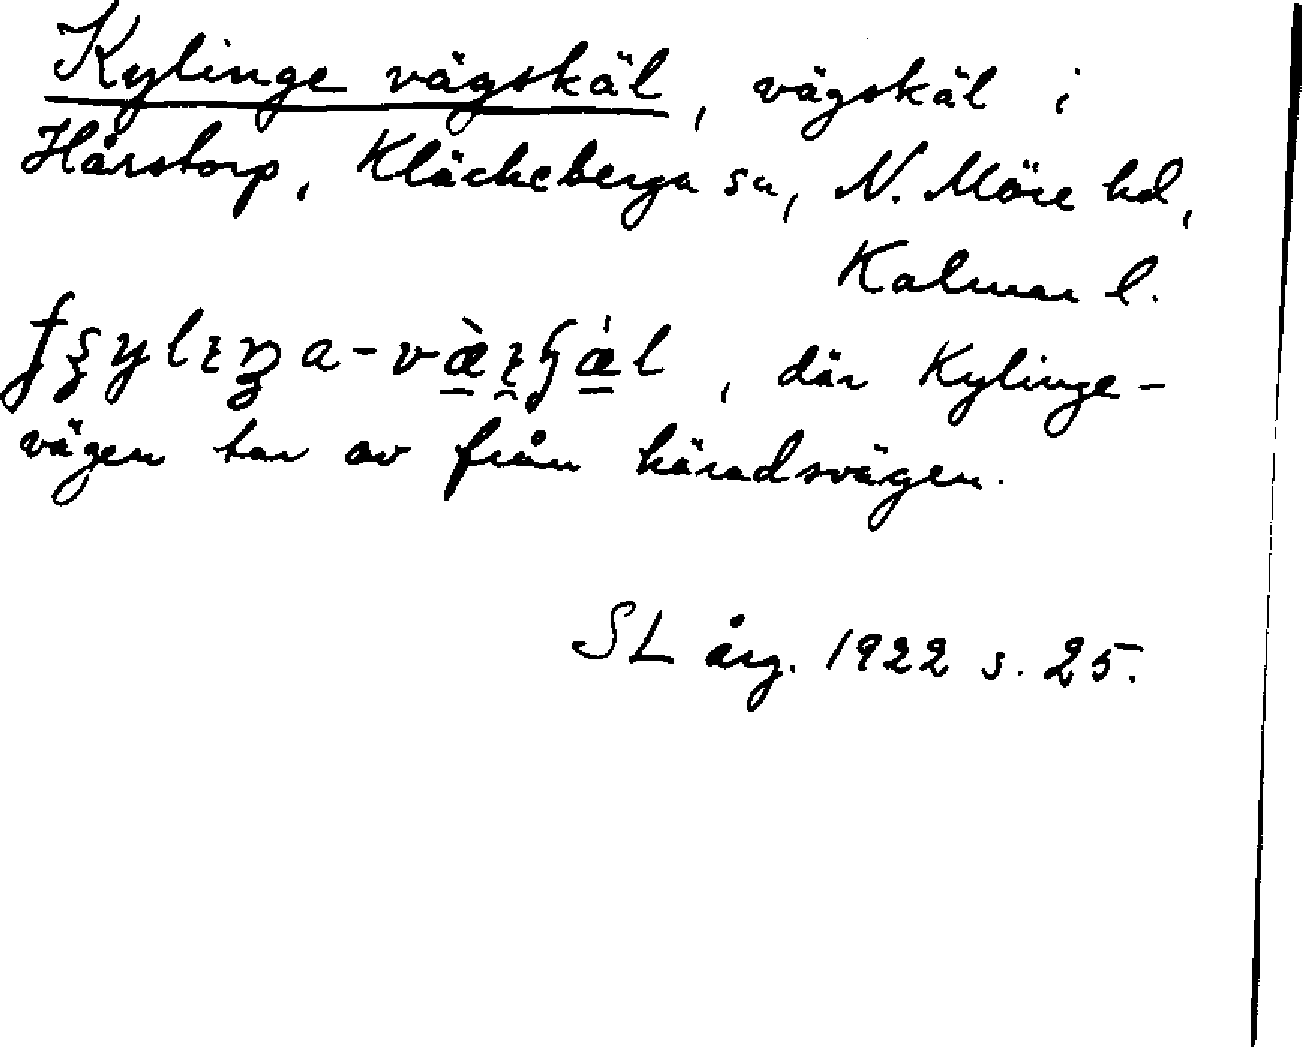 Kylinge vägskäl, vägskäl i
Hårstorp, Kläckeberga sn, N. Möre hd,
Kalmar l.
, där Kylinge-
vägen tar av från häradsvägen.
SL årg. 1922 s. 25.